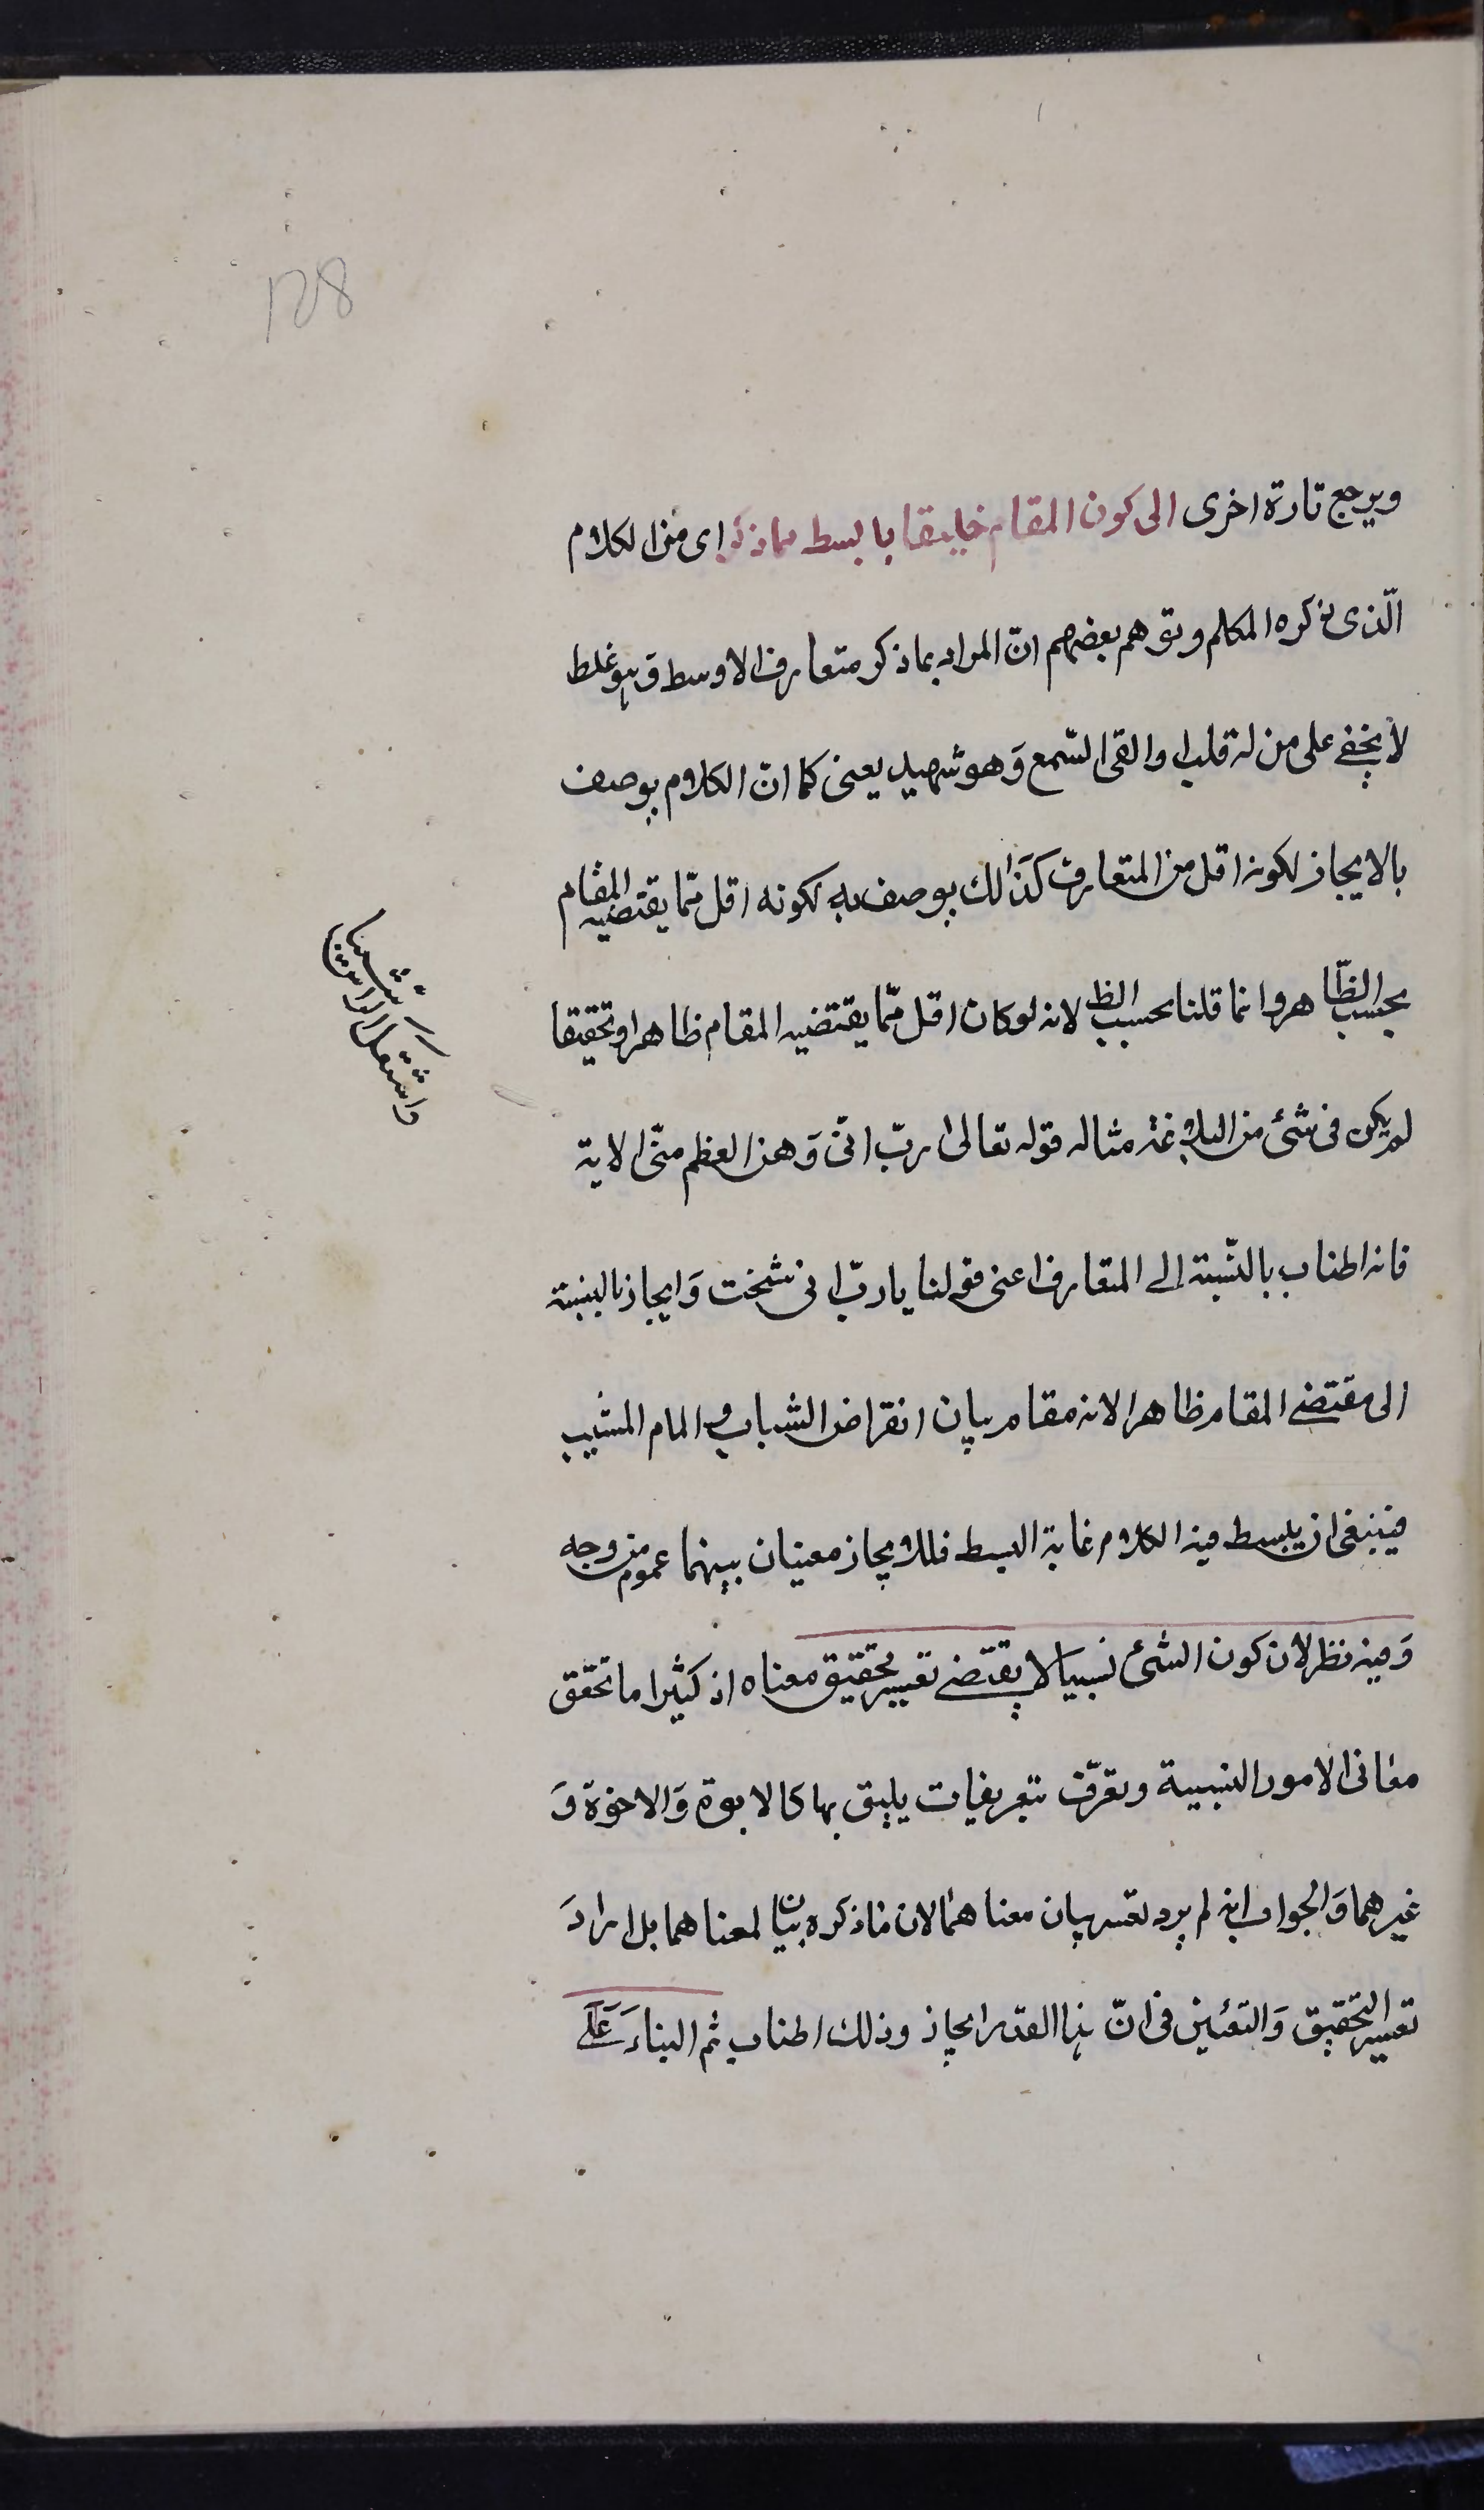 128
ويرجع تارة اخرى الى كون المقام خليقا بابسط مما ذكر اى من الكلام
الّذى ذكره المتكلم وتوهم بعضهم انّ المراد بما ذكر متعارف الاوسط وَهو غلط
لا يخفى على من له قلب او القى السّمع وَهو شهيد يعنى كما انّ الكلام يوصف
بالايجاز لكونه اقل من المتعارف كذَالك يوصف به لكونه اقل ممّا يقتضيه المقام
بحسب الظّاهر وانما قلنا بحسب الظ لانه لوكان اقل ممّا يقتضيه المقام ظاهرا وتحقيقا
لم يكن فى شئ من البلاغة مثاله قوله تعالىٰ ربّ انّى وَهن العظم منّى الاية
فانه اطناب بالنّسبة الى المتعارف اعنى قولنا يا ربّ انى شخت وَايجاز بالنسبة
الى مقتضى المقام ظاهرا لانه مقام بيان انقراض الشباب والمام المشيب
فينبغى ان يبسط فيه الكلام غاية البسط فللايجاز معنيان بينهما عموم من وجه
وَفيه نظر لان كون الشئ نسبيا لا يقتضى تعسير تحقيق معناه اذ كثيرا ما تحقق
معانى الامور النسبية وتعرّف بتعريفات يليق بها كالابوة وَالاخوة وَ
غيرهما وَالجواب انه لم يرد تعسر بيان معناهما لان ما ذكره بيان لمعناهما بل اراد
تعسير التحقيق وَالتعيّين فى انّ هذا القدر ايجاز وذلك اطناب ثم البناءَ عَلَى
واشتعل الراس
شيبا